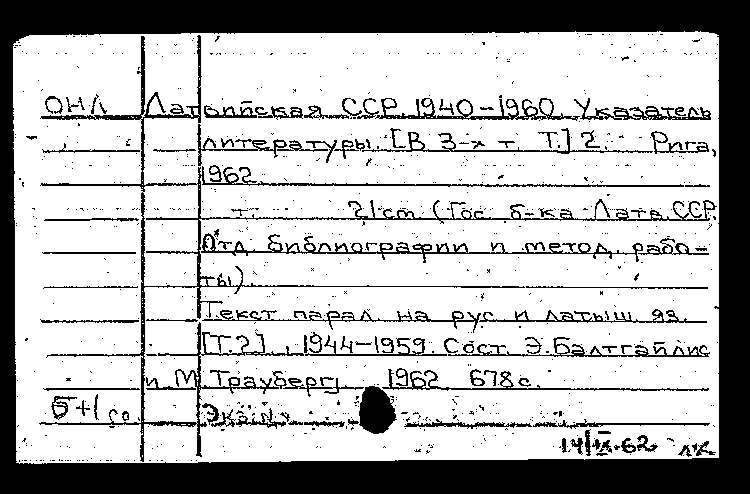 ОНЛ Латвийская ССР. 1940-1960. Указатель
литературы. [В 3-х т. Т.] 2. Рига,
1962.
т. 21cm (Гос. б-ка Латв. ССР.
Отд. библиографии и метод. рабо-
ты).
Текст парал. на рус. и латыш. яз.
[Т.2]. 1944-1959. Сост. Э. Балтгайлис
и М. Трауберг. 1962. 678с.
5+1
14/IX-62.